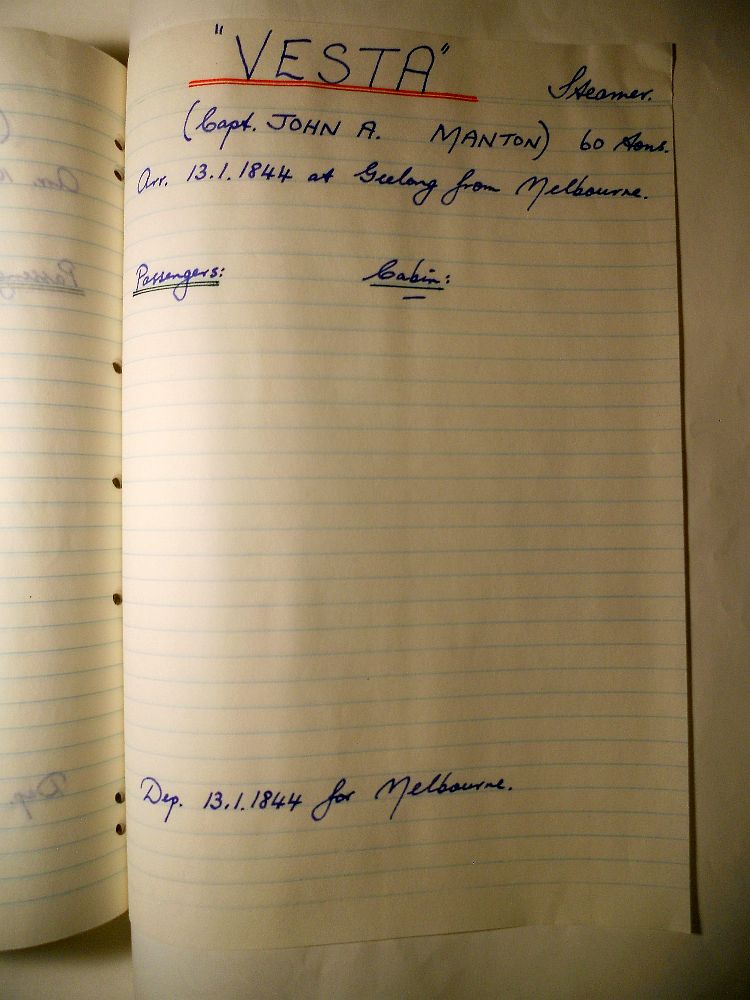 "VESTA" Steamer.
(Capt. JOHN A. MANTON) 60 tons.
Arr. 13.1.1844 at Geelong from Melbourne.
Passengers: Cabin:
Dep. 13.1.1844 for Melbourne.